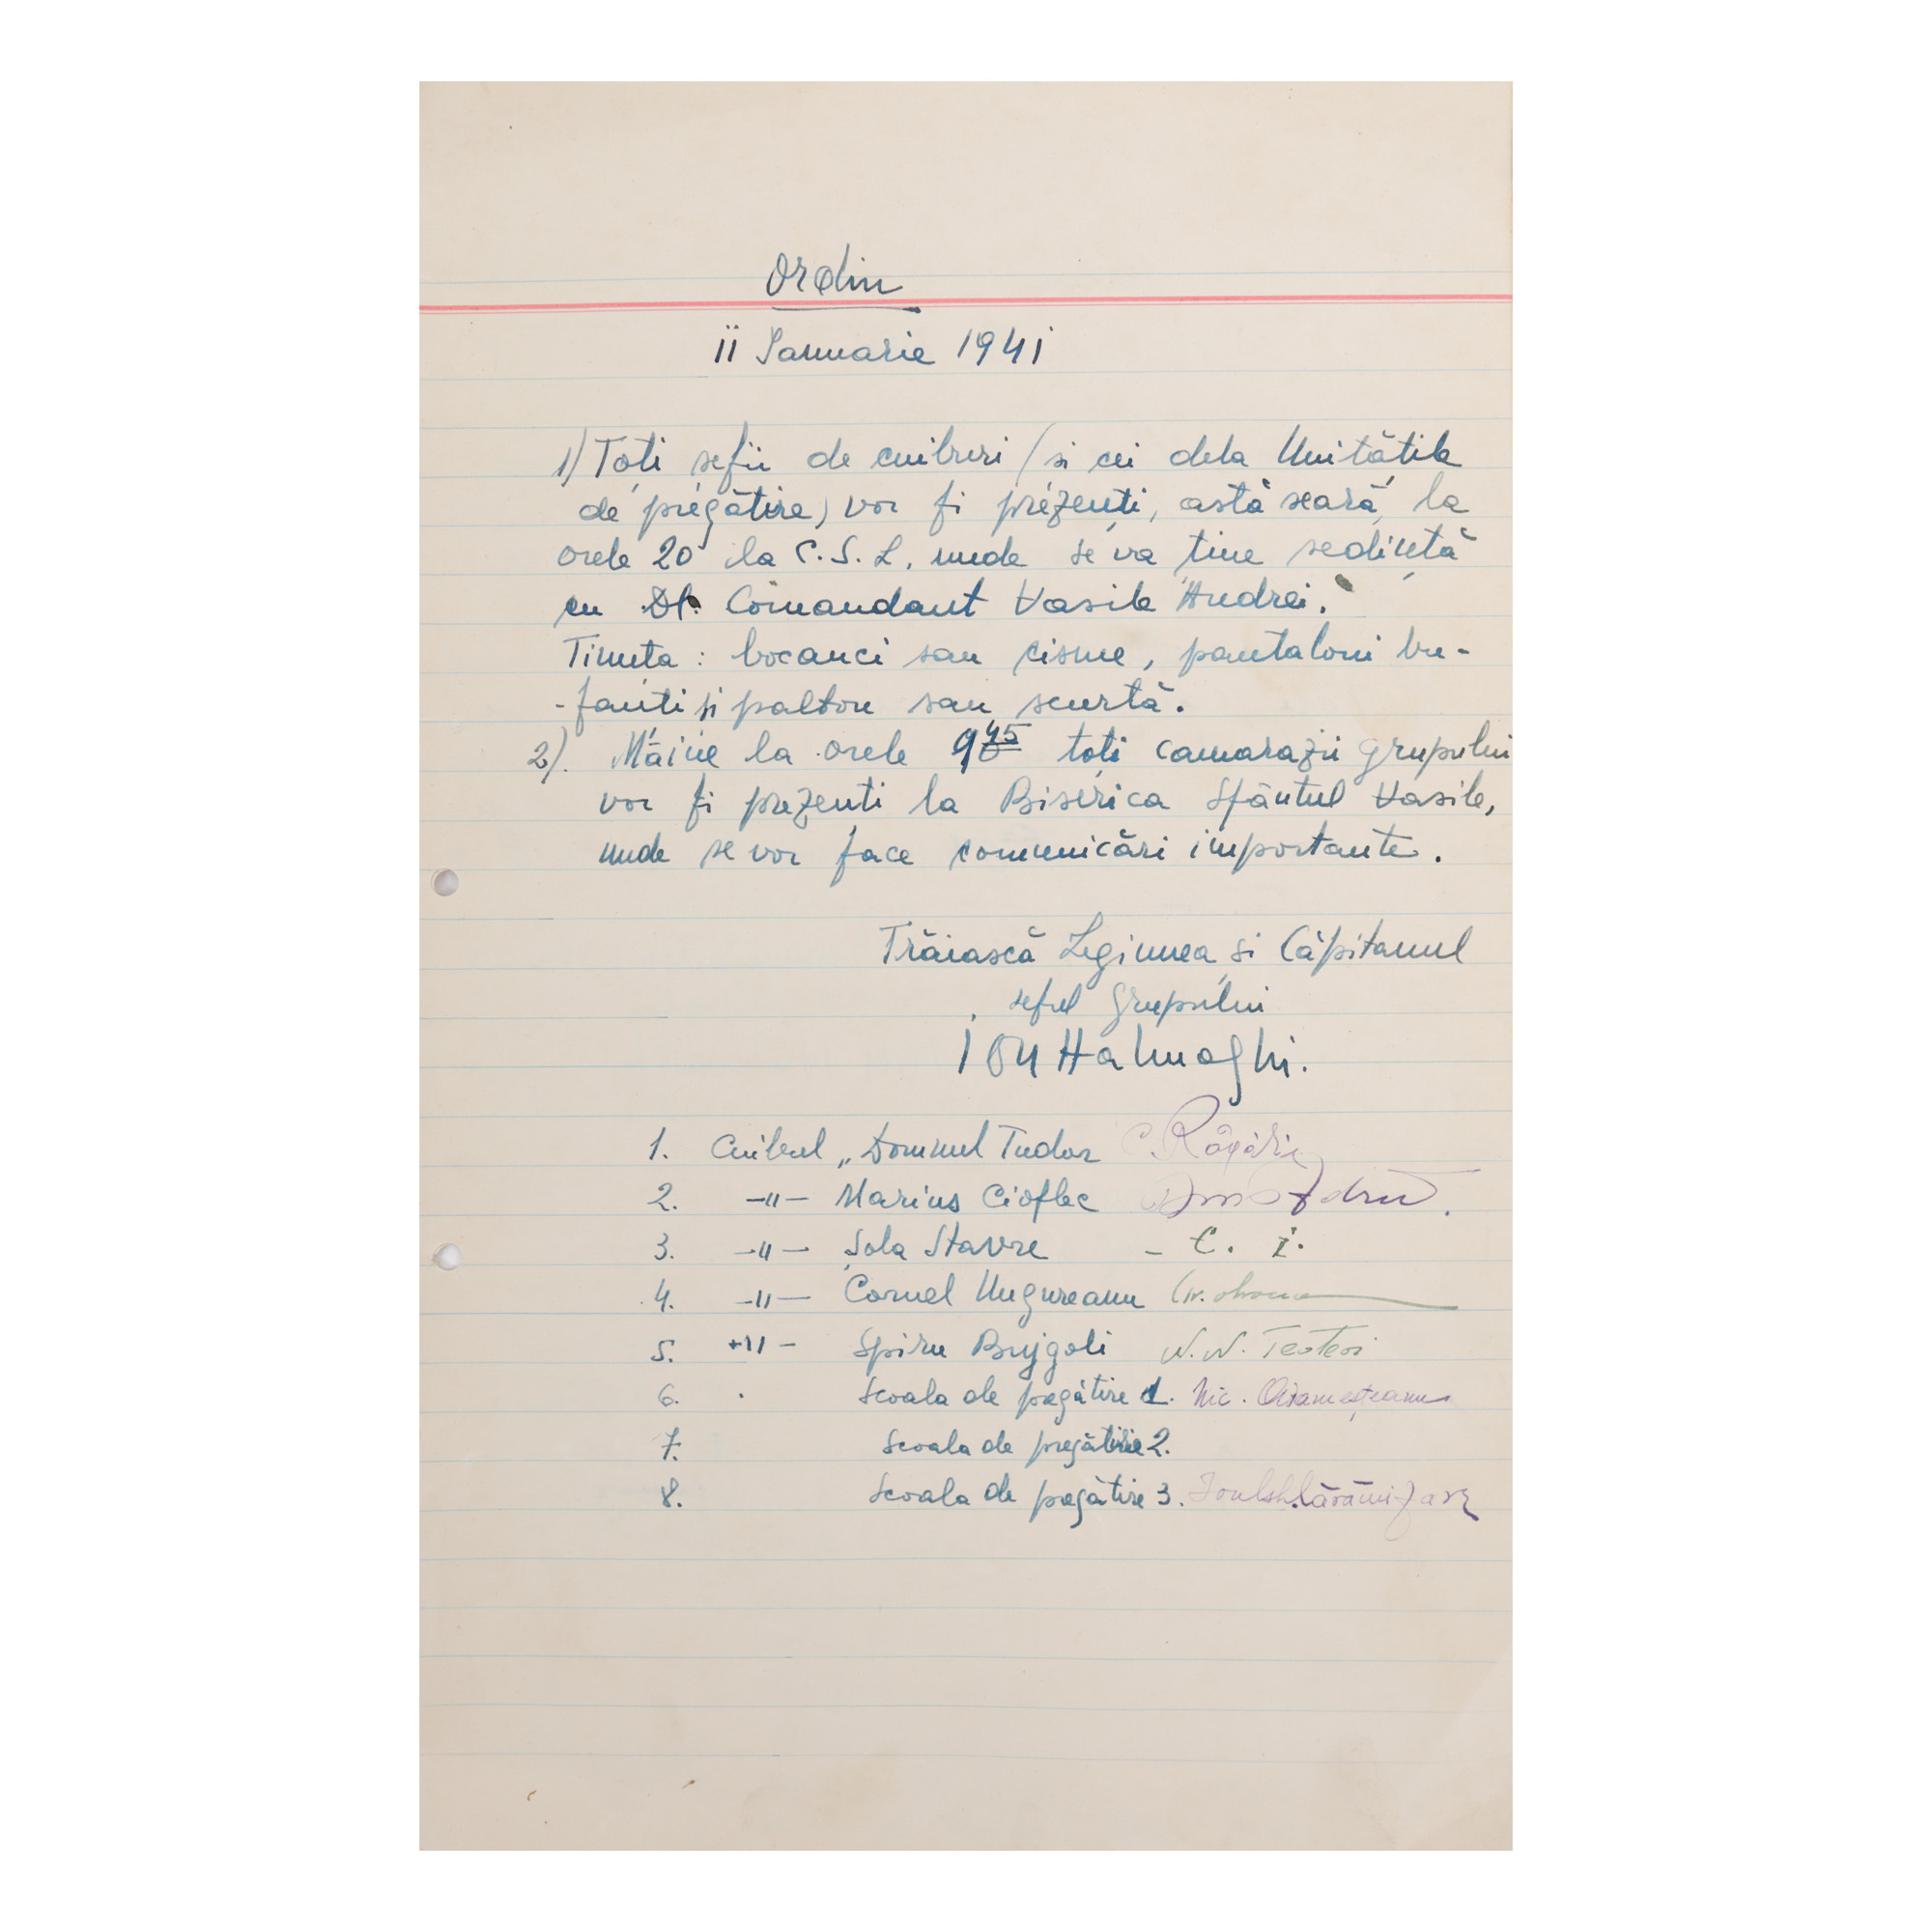 Ordin
11 Ianuarie 1941
1) Toți șefii de cuiburi (și cei dela Unitățile
de pregătire) vor fi prezenți, astă seară, la
orele 20 la C.S.L. unde se va ține ședință
cu Dl. Comandant Vasile Andrei.
Ținuta: bocanci sau cisme, pantaloni bu-
-fanți și palton sau scurtă.
2). Mâine la orele 9 45 toți camarazii grupului
vor fi prezenți la Biserica Sfântul Vasile,
unde se vor face comunicări importante.
Trăiască Legiunea și Căpitanul
șeful grupului
ION Halmaghi.
1. Cuibul „Domnul Tudor
2. —"— Marius Cioflec
3. —"— Șola Stavre – C. I.
4. —"— Cornel Ungureanu
5. —"— Spiru Bujgoli N. N.
6. Scoala de pregătire 1. Nic.
7. Scoala de pregătire 2.
8. Scoala de pregătire 3.